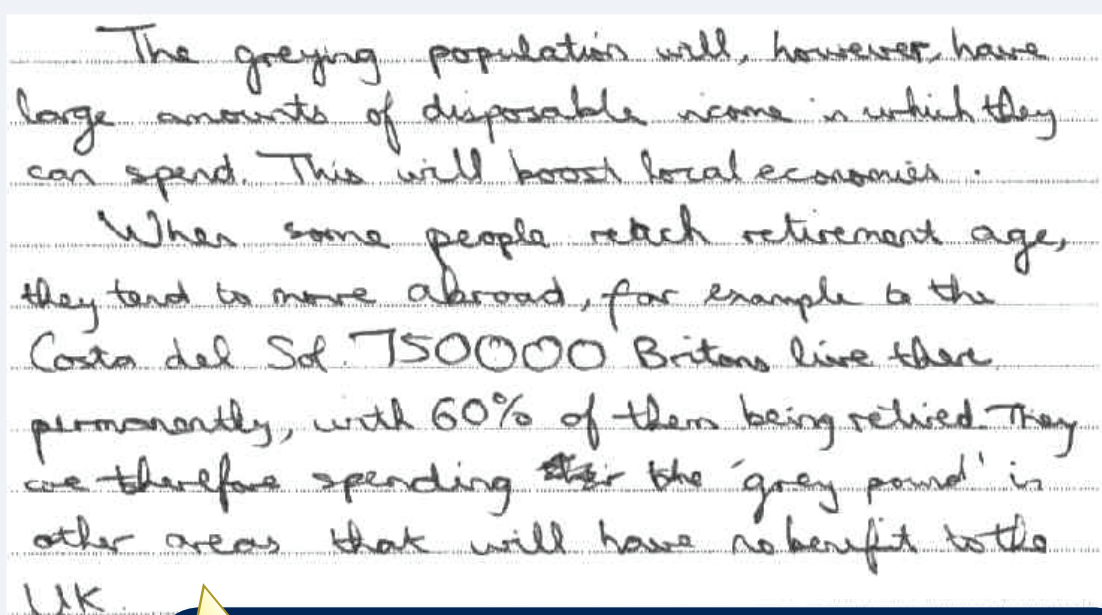 The greying population will, however, have
large amounts of disposable income in which they
can spend. This will boost local economies.
When some people reach retirement age,
they tend to move abroad, for example to the
Costa del Sol. 750000 Britons live there
permanently, with 60% of them being retired. They
are therefore spending the 'grey pound' in
other areas that will have no benefit to the
UK.